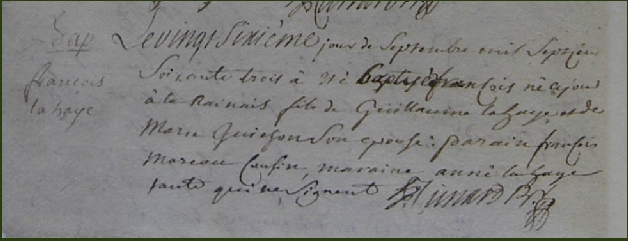 Bap
françois
la haye
Le vingt Sixieme jour de Septembre mil Sept Cens
Soixante trois à été baptisé françois né ce jour
à la Rainais fils de Guillaume la haye et de
Marie Guichon Son epouse: parain françois
Moreau Cousin, maraine anne la haye
tante qui ne signent